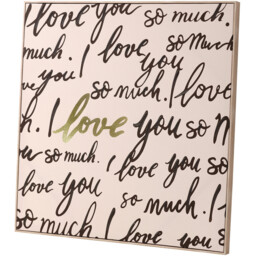 you so much. I love you
I love you so much
you
so much. I love
h. I love you so m
so much. I love
love you so much
so much. I love you